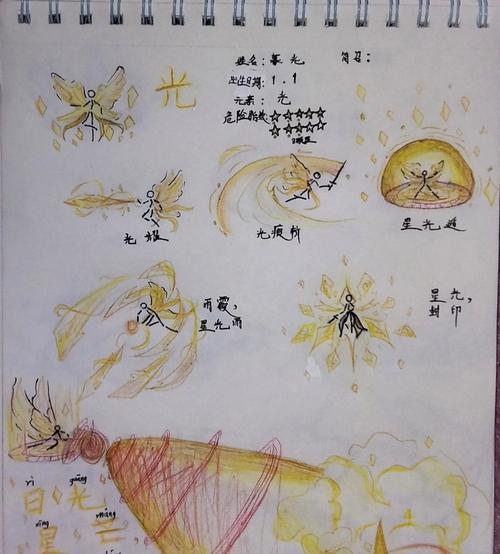 光
姓名：慕光
简召：
出生日期：1.1
元素：光
危险指数：☆☆☆☆☆
☆☆☆☆☆
光耀
光痕斩
星光遁
雨霞，
星光雨
星光，
封印
rì guāng
日光
xīng máng
星芒